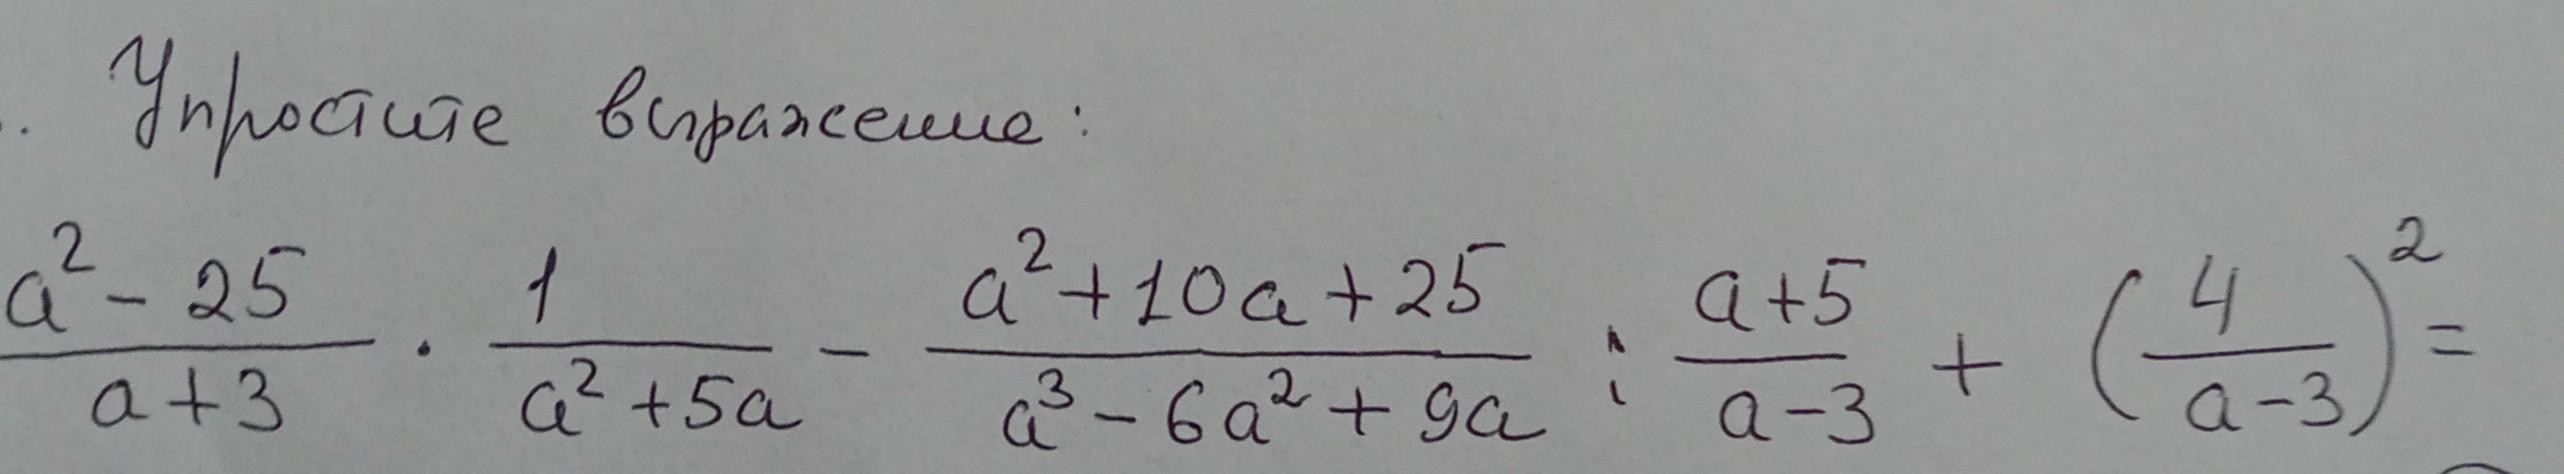 Упростите выражение:
\frac{a^2-25}{a+3} \cdot \frac{1}{a^2+5a} - \frac{a^2+10a+25}{a^3-6a^2+9a} : \frac{a+5}{a-3} + \left(\frac{4}{a-3}\right)^2 =